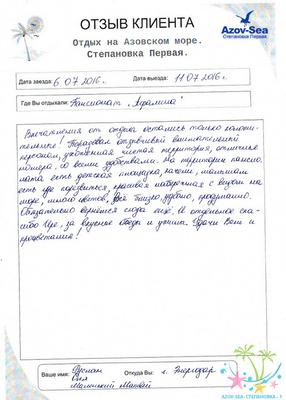 ОТЗЫВ КЛИЕНТА
Azov-Sea
Степановка Первая
Отдых на Азовском море.
Степановка Первая.
Дата заезда: 6.07.2016г. Дата выезда: 11.07.2016г.
Где Вы отдыхали: Пансионат "Афалина"
Впечатления от отдыха остались только положи-
тельные! Порадовал отзывчивый внимательный
персонал, ухоженная чистая территория, отличные
номера со всеми удобствами. На территории пансио-
ната есть детская площадка, качели, малышам
есть где порезвиться, красивая набережная с видом на
море, много цветов, всё близко, удобно, продумано.
Обязательно вернёмся сюда ещё. И отдельное спа-
сибо Ире, за вкусные обеды и ужины. Удачи Вам и
процветания!
Ваше имя: Руслан Откуда Вы: г. Энергодар
Оля
Маленький Матвей
AZOV-SEA-СТЕПАНОВКА-1